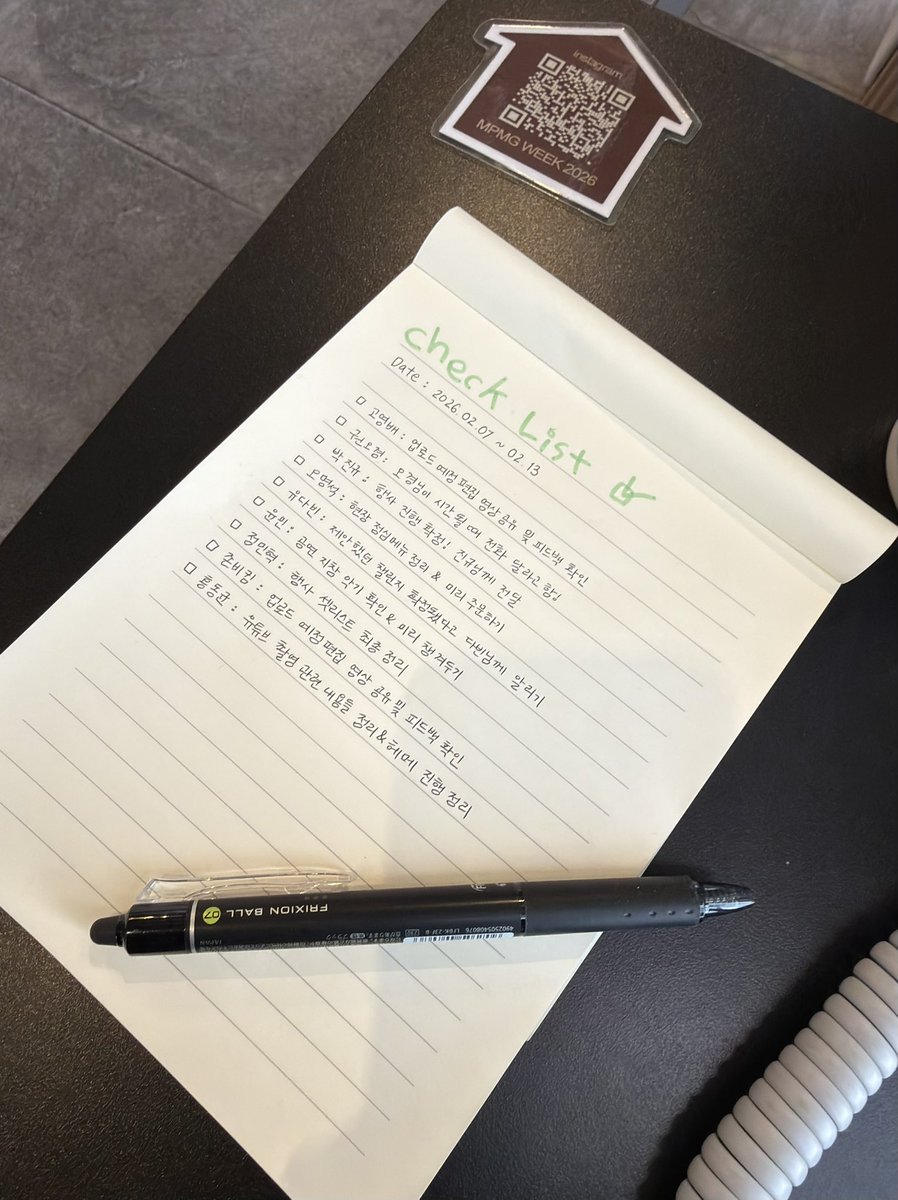 instagram
MPMG WEEK 2026
check List
Date : 2026.02.07 ~ 02.13
□ 고영배 : 업로드 예정 편집 영상 공유 및 피드백 확인
□ 권오경 : 오경님이 시간 될 때 전화 달라고 함!
□ 박진규 : 행사 진행 확정! 진규님께 전달
□ 오명석 : 현장 점심메뉴 정리 & 미리 주문하기
□ 유다빈 : 제안했던 챌린지 확정됐다고 다빈님께 알리기
□ 윤인 : 공연 지장 악기 확인 & 미리 챙겨두기
□ 정민혁 : 행사 셋리스트 최종 정리
□ 준비킹 : 업로드 예정 편집 영상 공유 및 피드백 확인
□ 홍동균 : 유튜브 촬영 관련 내용들 정리 & 헤메 진행 정리
FRIXION BALL 07
JAPAN
4902505408076 LFBK-23F-B